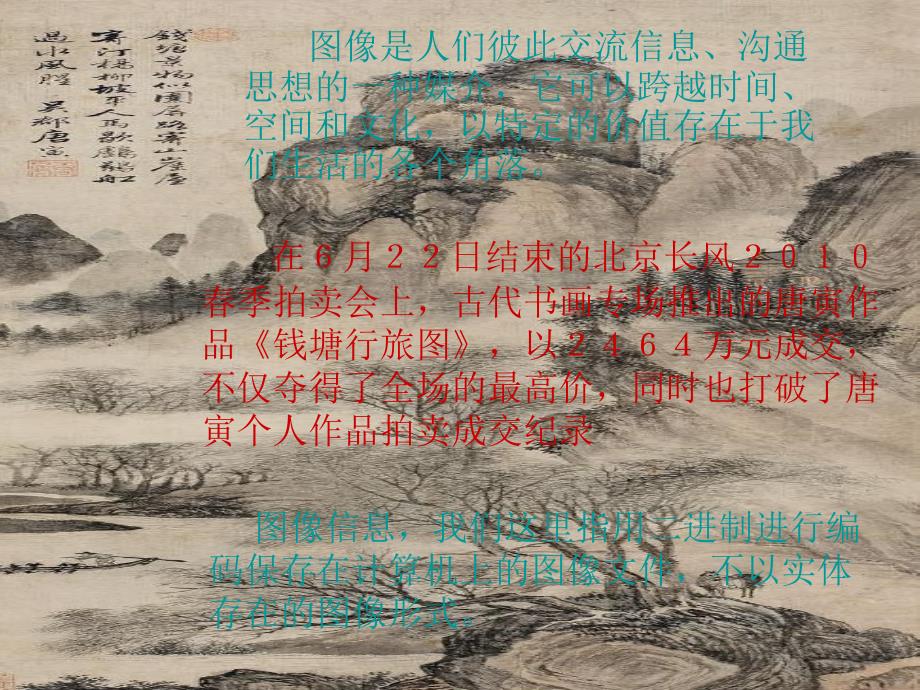 錢塘景物似圍屏路寄山崖屋
寄汀楊柳坡平人馬歇鸕鶿船
過水風腥 吳郡唐寅
图像是人们彼此交流信息、沟通
思想的一种媒介，它可以跨越时间、
空间和文化，以特定的价值存在于我
们生活的各个角落。
在６月２２日结束的北京长风２０１０
春季拍卖会上，古代书画专场推出的唐寅作
品《钱塘行旅图》，以２４６４万元成交，
不仅夺得了全场的最高价，同时也打破了唐
寅个人作品拍卖成交纪录
图像信息，我们这里指用二进制进行编
码保存在计算机上的图像文件，不以实体
存在的图像形式。